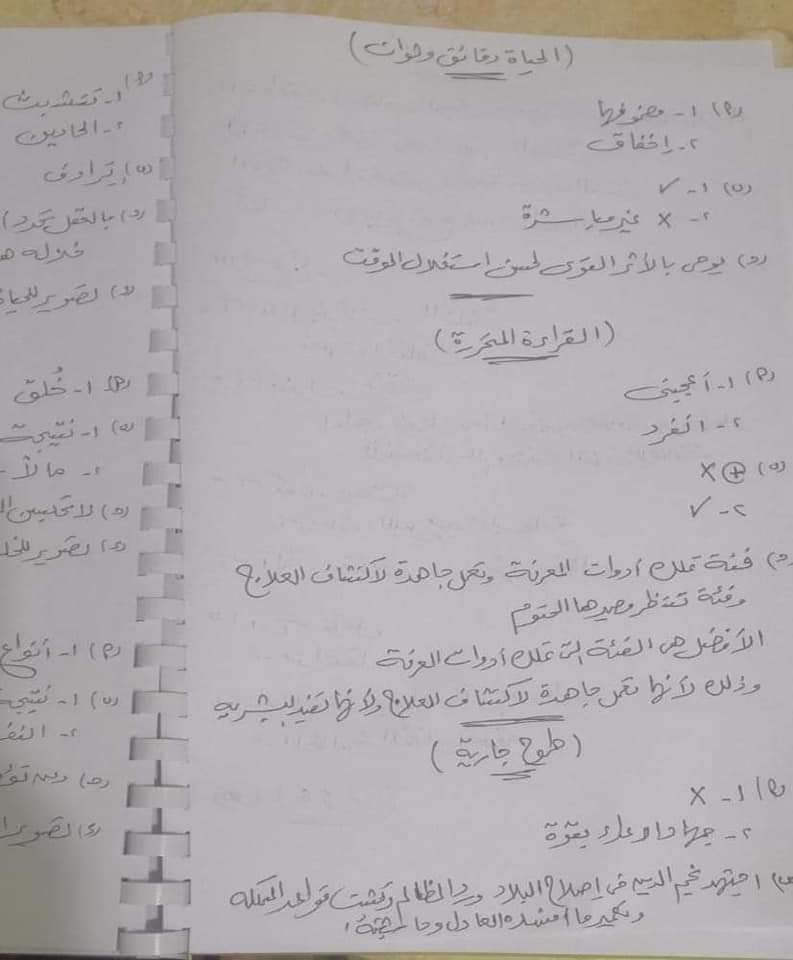 (الحياة دقائق وثوان)
(أ) ١- مصفوفها
٢- إخفاق
(ب) ١- ✓
٢- X غير مباشرة
(ج) يوحى بالأثر القوى لحسن استغلال الوقت
(القراءة المتحررة)
(أ) ١- أعجبنى
٢- انفرد
(ب) X
٢- ✓
(ج) فئة تملك أدوات المعرفة وتعمل جاهدة لاكتشاف العلاج
وفئة تنتظر مصيرها المحتوم
الأفضل هى الفئة التى تملك أدوات المعرفة
وذلك لأنها تعمل جاهدة لاكتشاف العلاج ولأنها تفيد البشرية
(طموح جارية)
(أ) ١- X
٢- جهاد الأعداء بقوة
(ب) اجتهد نجم الدين فى إصلاح البلاد ورد المظالم وتثبيت قواعد المملكة
وتعمير ما أفسده العادل
(أ) ١- تشبث
٢-
(ب) ترادف
(ج) بالعقل تحدد
خلاله
(د) تصوير للحياة
(أ) ١- خُلق
(ب) ١- نتيجة
٢- مالاً
(ج) لا تحليين
(د) تصوير
(أ) ١- أنواع
(ب) ١- نتيجة
٢-
(ج)
(د) تصوير